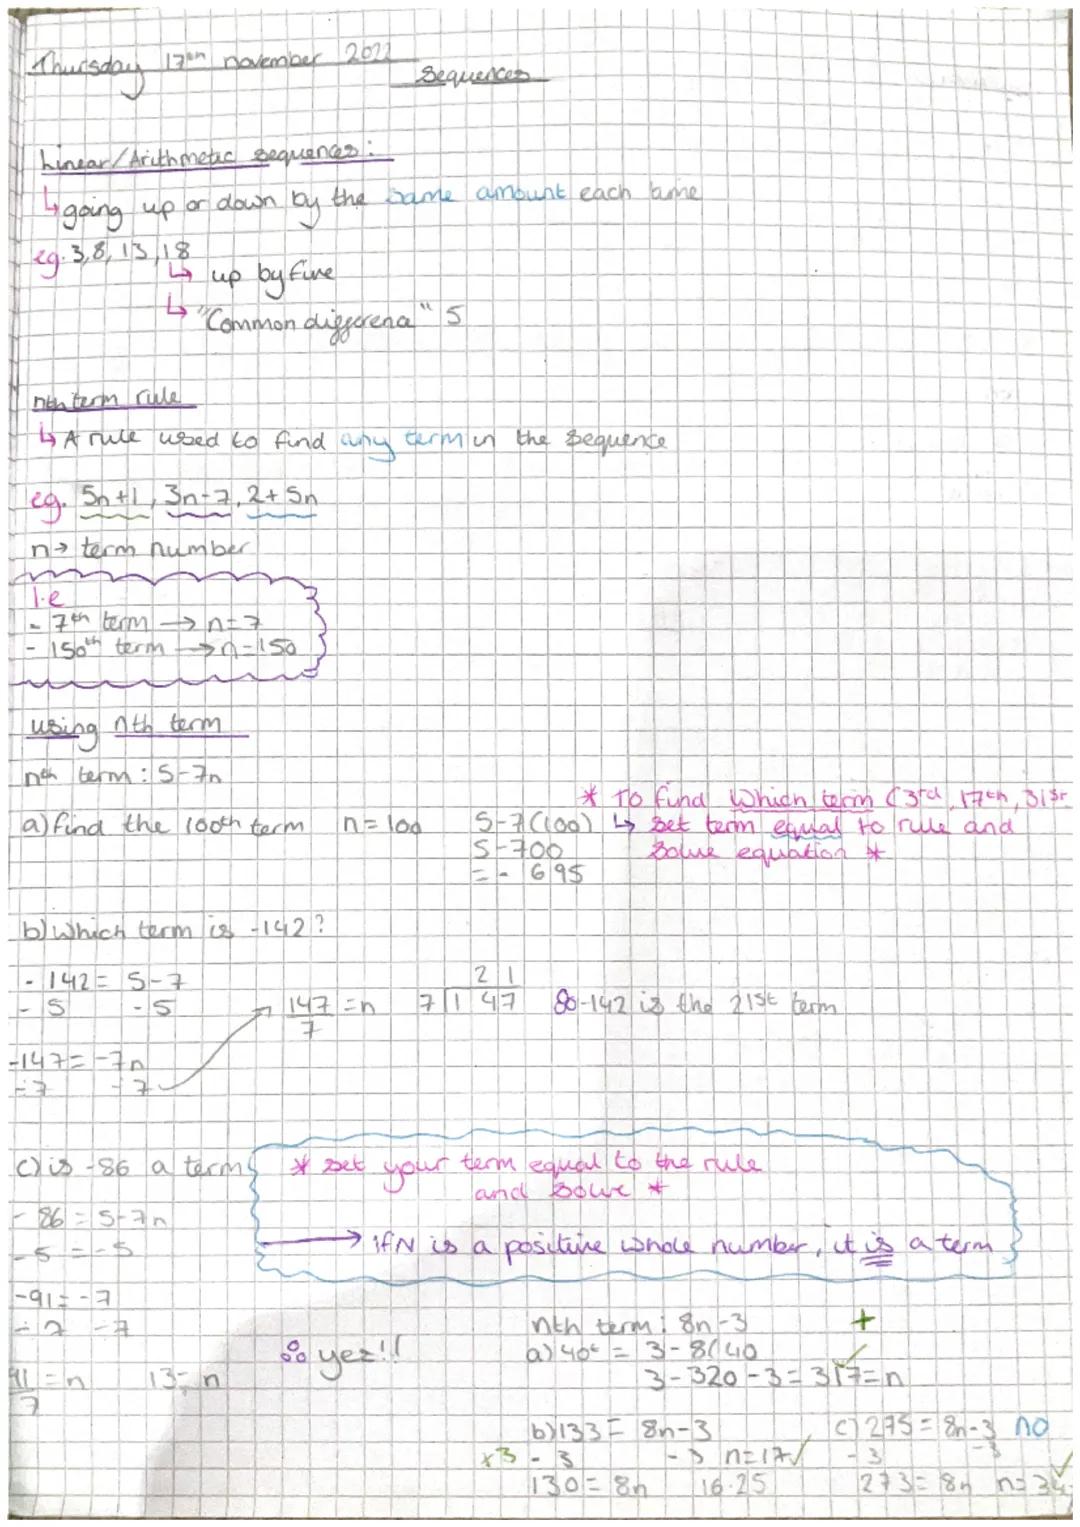 Thursday 17th november 2022
Sequences
Linear/Arithmetic sequences:
↳ going up or down by the same amount each time
eg. 3,8,13,18
↳ up by five
↳ "Common differena" 5
nth term rule
↳ A rule used to find any term in the sequence
eg. 5n+1, 3n-7, 2+5n
n→ term number
I.e
- 7th term → n=7
- 150th term → n=150
using nth term
nth term: 5-7n
* To find which term (3rd, 17th, 31st
a) find the 100th term n=100 5-7(100) ↳ set term equal to rule and
5-700 solve equation *
= - 695
b) Which term is -142?
- 142 = 5-7
- 5 -5
147/7 = n 7)147 21 ∴ -142 is the 21st term
-147 = -7n
÷7 ÷7
c) is -86 a term * set your term equal to the rule
and solve *
- 86 = 5-7n
-5 = -5
→ if N is a positive whole number, it is a term
-91 = -7
÷7 -7
nth term: 8n-3 +
∴ yez!! a) 40t = 3-8(40 ✓
91/7 = n 13= n 3-320-3=317=n
b) 133 = 8n-3 c) 275 = 8n-3 no
×3 - 3 -3 n=17 ✓ -3 -3
130 = 8n 16.25 273 = 8n n=34 ✓